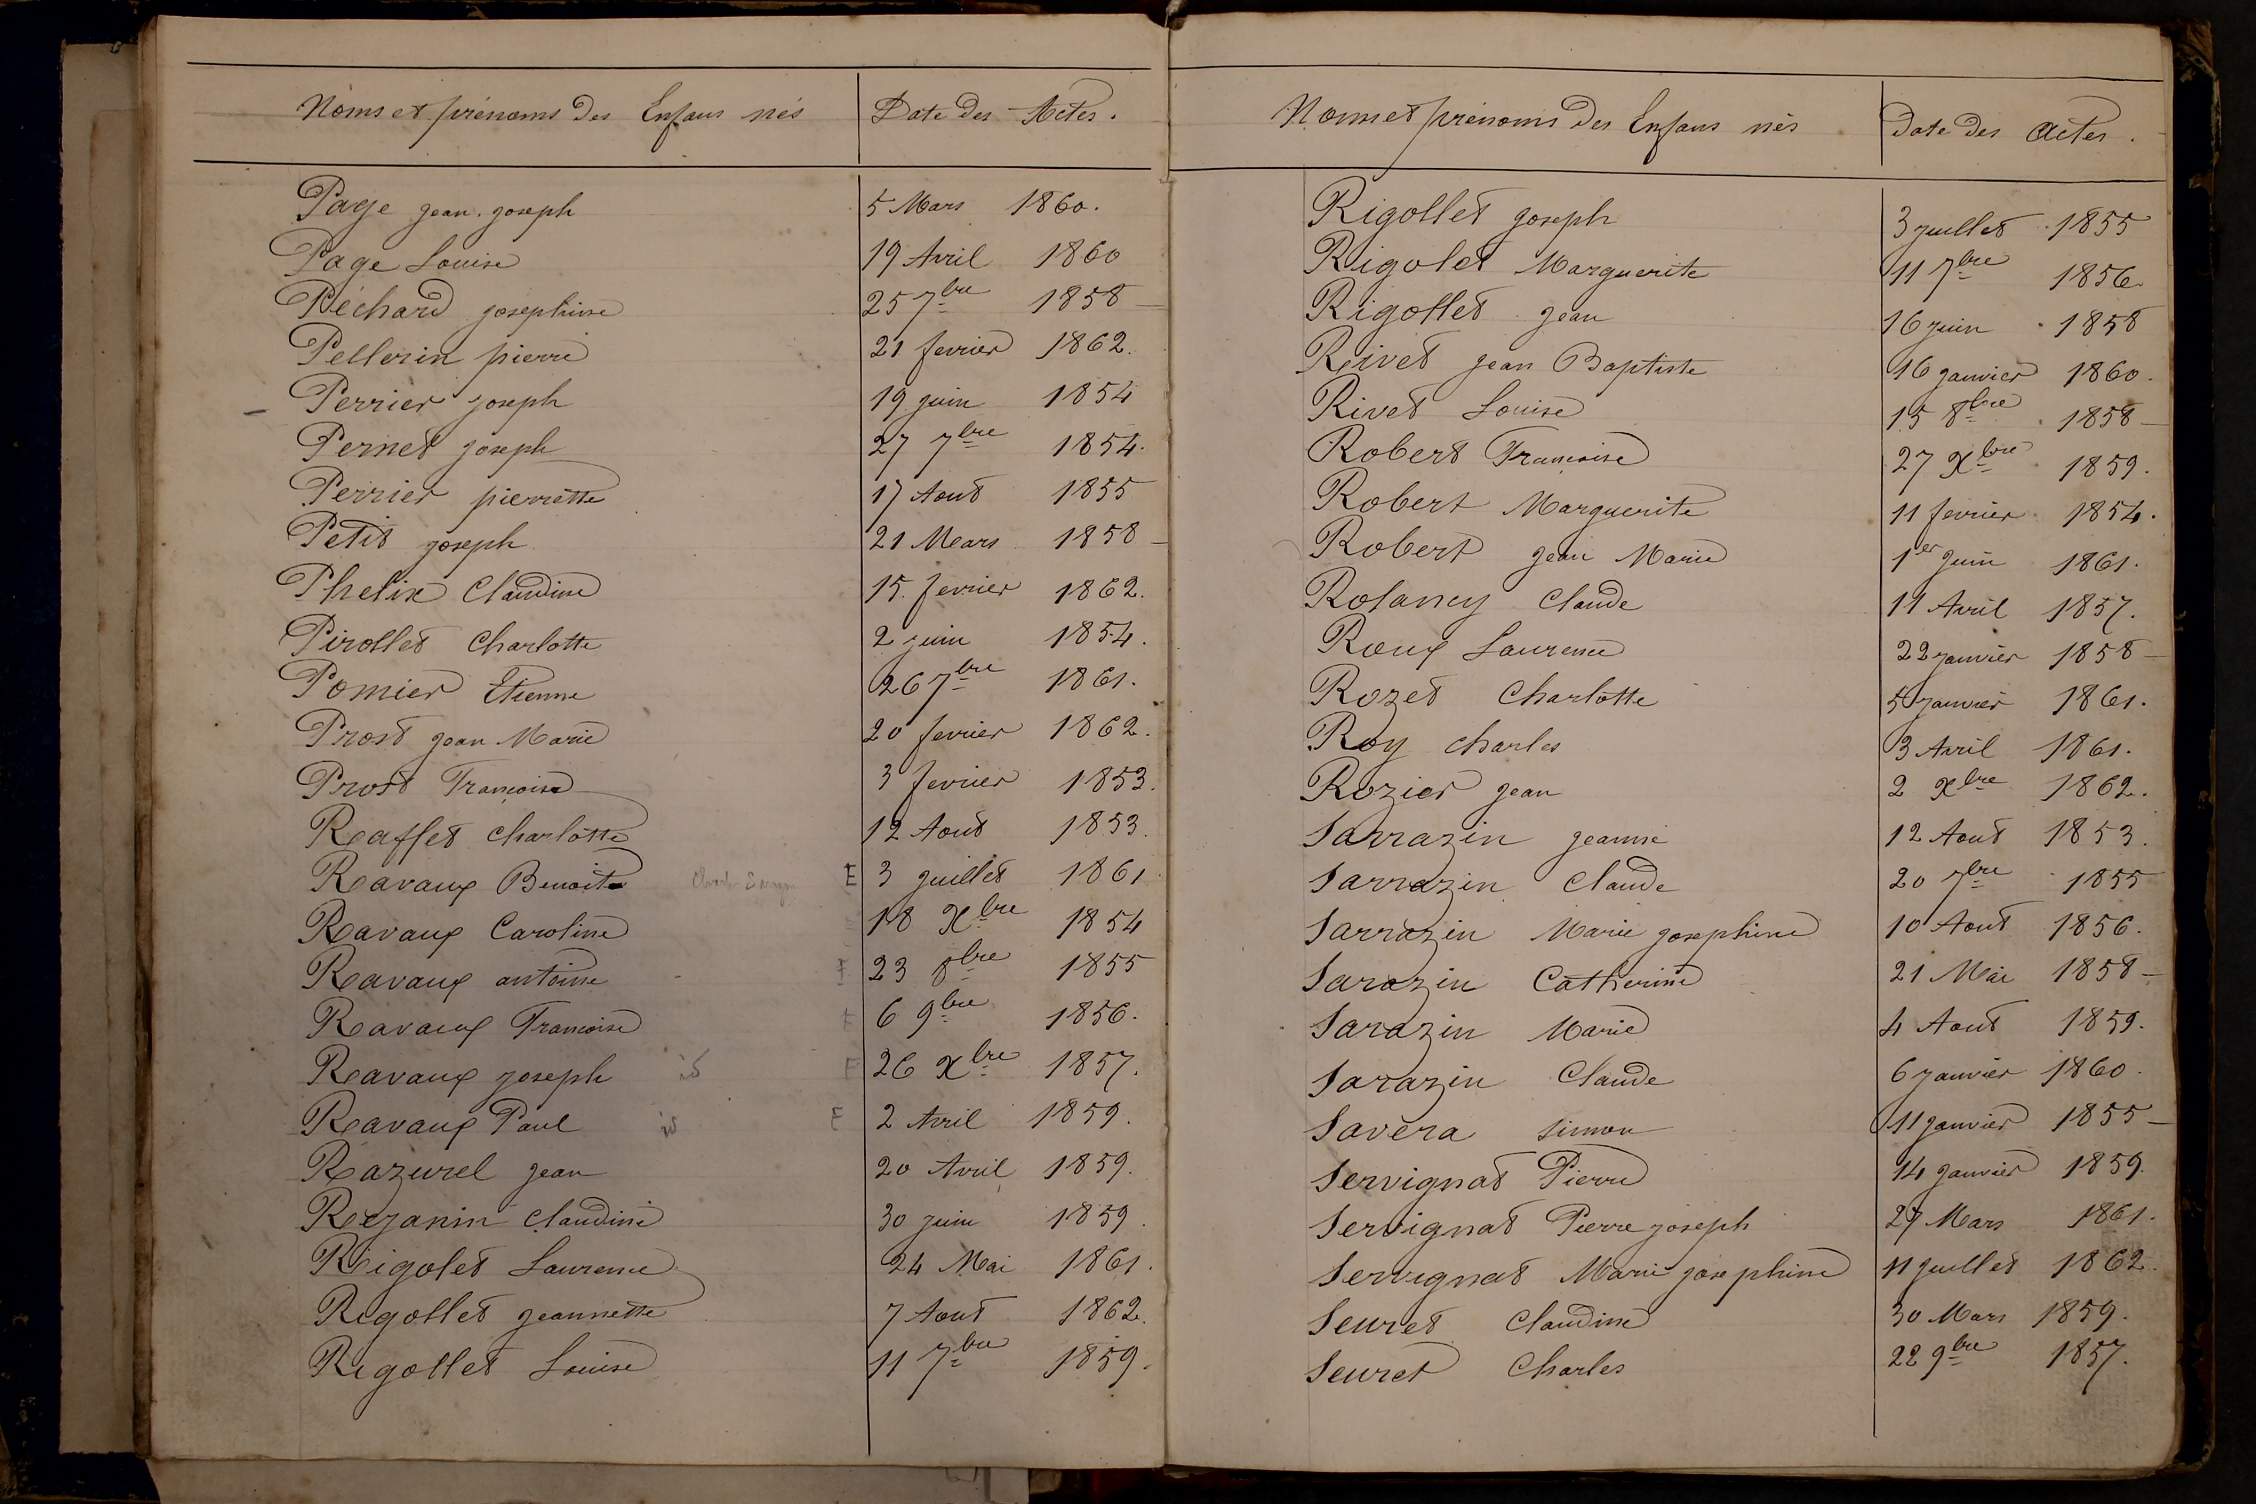 Noms et prénoms des Enfans nés Date des Actes.
Page jean joseph 5 Mars 1860.
Page Louise 19 Avril 1860
Péchard josephine 25 7bre 1858
Pellerin pierre 21 fevrier 1862.
Perrier joseph 19 juin 1854
Pernet joseph 27 7bre 1854.
Perrier pierrette 17 Aout 1855
Petit joseph 21 Mars 1858
Phelix Claudine 15 fevrier 1862.
Pirollet Charlotte 2 juin 1854.
Pomier Etienne 26 7bre 1861.
Prost jean Marie 20 fevrier 1862.
Prost Françoise 3 fevrier 1853.
Raffet Charlotte 12 Aout 1853.
Ravaux Benoite E 3 juillet 1861
Ravaux Caroline 18 Xbre 1854
Ravaux antoine E 23 8bre 1855
Ravaux Francoise E 6 9bre 1856.
Ravaux joseph id E 26 Xbre 1857.
Ravaux Paul id E 2 Avril 1859.
Razurel jean 20 Avril 1859.
Rejanin Claudine 30 juin 1859.
Rigolet Laurence 24 Mai 1861.
Rigollet jeannette 7 Aout 1862.
Rigollet Louise 11 7bre 1859.
Noms et prénoms des Enfans nés Date des Actes.
Rigollet joseph 3 juillet 1855
Rigolet Marguerite 11 7bre 1856.
Rigollet jean 16 juin 1858
Rivet jean Baptiste 16 janvier 1860.
Rivet Louise 15 8bre 1858
Robert Francoise 27 Xbre 1859.
Robert Marguerite 11 fevrier 1854.
Robert jean Marie 1er juin 1861.
Rolancy Claude 11 Avril 1857.
Roux Laurence 22 janvier 1858
Rozet Charlotte 5 janvier 1861.
Roy Charles 3 Avril 1861.
Rozier jean 2 Xbre 1862.
Sarrazin jeanne 12 Aout 1853.
Sarrazin Claude 20 7bre 1855
Sarrazin Marie josephine 10 Aout 1856.
Sarazin Catherine 21 Mai 1858
Sarazin Marie 4 Aout 1859.
Sarazin Claude 6 janvier 1860.
Savéra simon 11 janvier 1855
Servignat Pierre 14 janvier 1859.
Servignat Pierre joseph 27 Mars 1861.
Servignat Marie josephine 11 juillet 1862.
Seuret Claudine 30 Mars 1859.
Seuret Charles 22 9bre 1857.